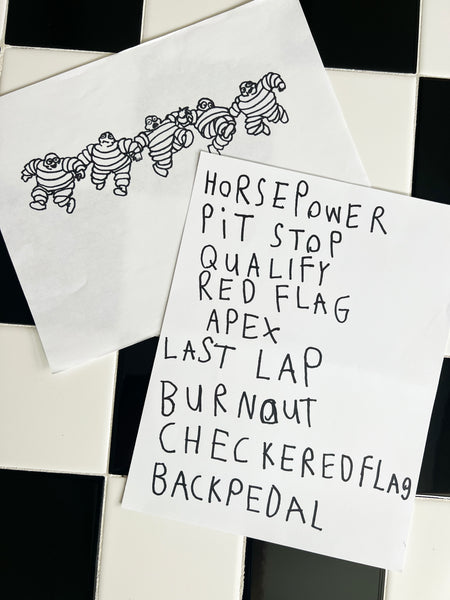 HORSEPOWER
PiT STOP
QUALIFY
RED FLAG
APEX
LAST LAP
BURNOUT
CHECKEREDFLAg
BACKPEDAL